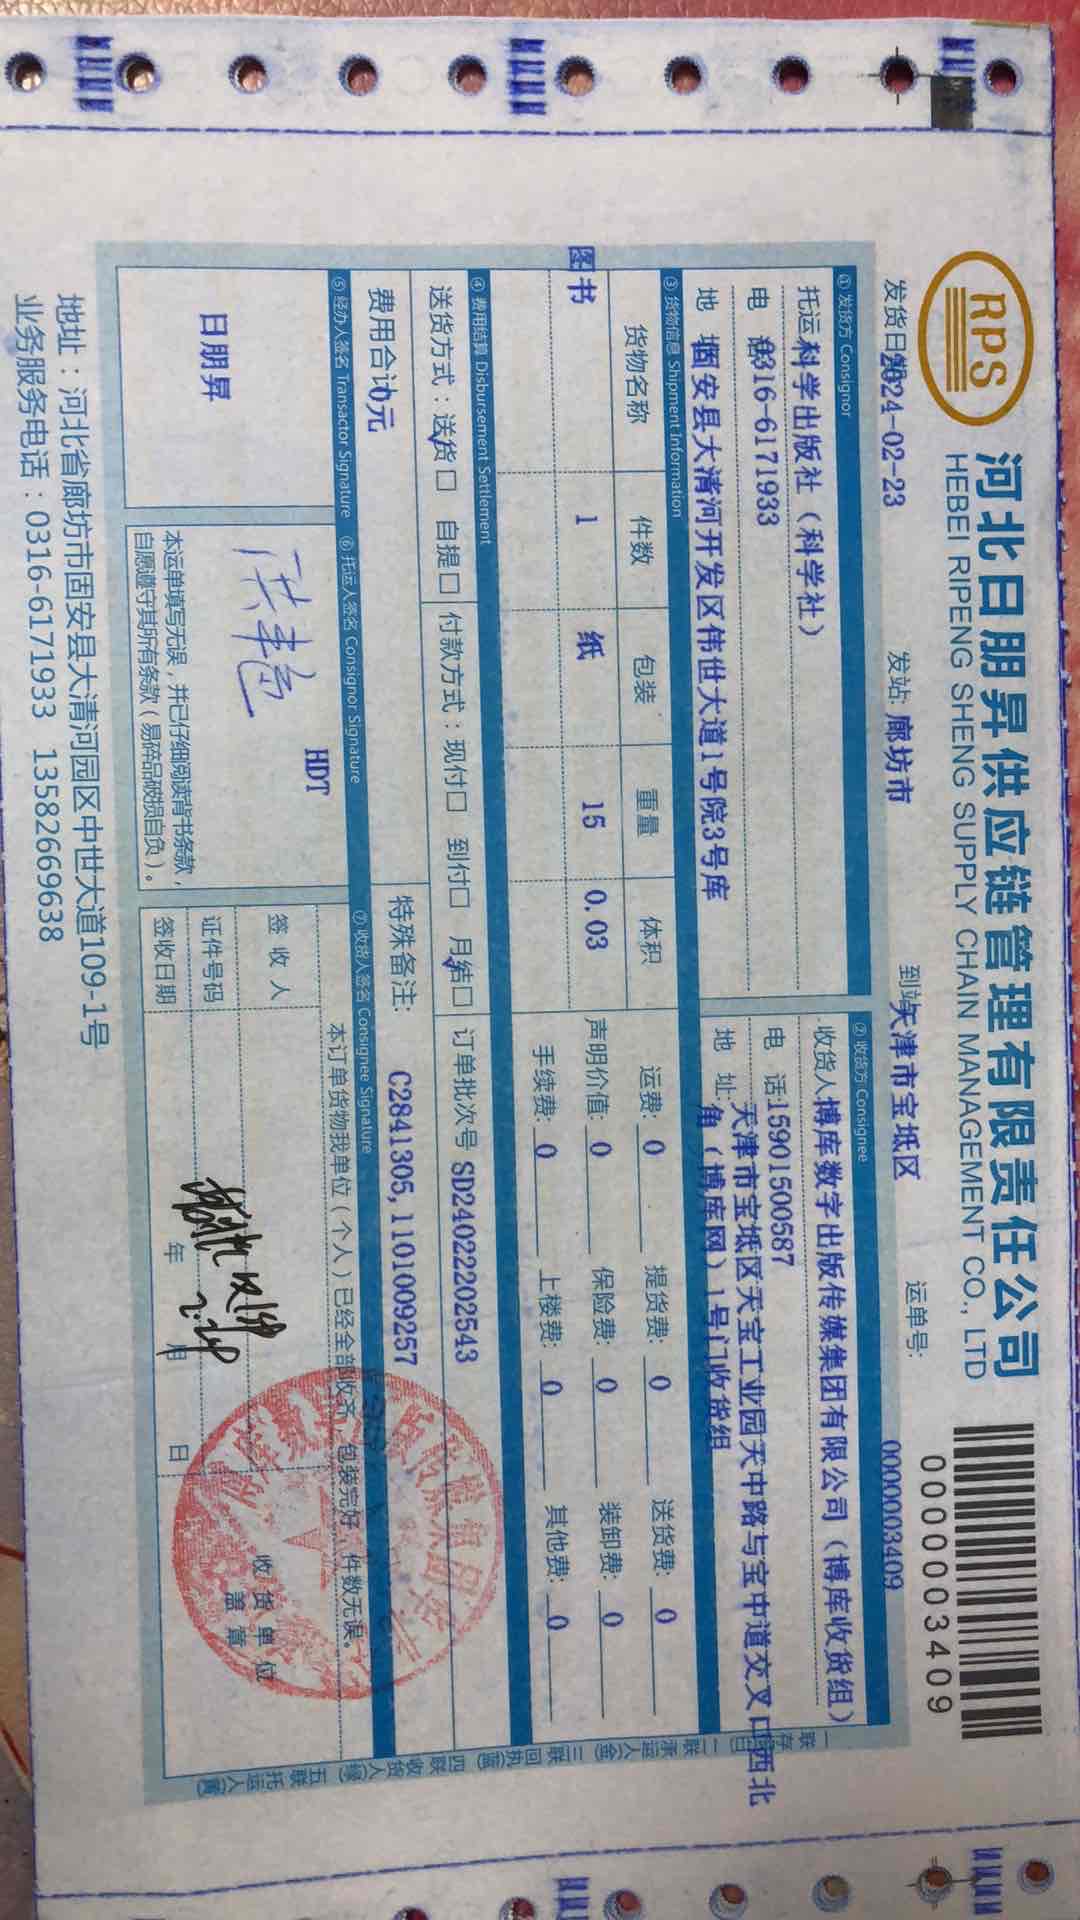 RPS
河北日朋昇供应链管理有限责任公司
HEBEI RIPENG SHENG SUPPLY CHAIN MANAGEMENT CO., LTD
0000003409
发货日期 2024-02-23 发站: 廊坊市 到站: 天津市宝坻区 运单号: 0000003409
① 发货方 Consignor
托运 科学出版社（科学社）
电 话 0316-6171933
地 址 固安县大清河开发区伟世大道1号院3号库
② 收货方 Consignee
收货人 博库数字出版传媒集团有限公司（博库收货组）
电 话: 15901500587
地 址: 天津市宝坻区天宝工业园天中路与宝中道交叉口西北
角（博库网）1号门收货组
③ 货物信息 Shipment Information
货物名称 件数 包装 重量 体积
图书 1 纸 15 0.03
运费: 0 提货费: 0 送货费: 0
声明价值: 0 保险费: 0 装卸费: 0
手续费: 0 上楼费: 0 其他费: 0
④ 费用结算 Disbursement Settlement
送货方式：送货□ 自提□ 付款方式：现付□ 到付□ 月结□ 订单批次号 SD240222202543
费用合计0元 特殊备注: C2841305,1101009257
⑤ 经办人签名 Transactor Signature ⑥ 托运人签名 Consignor Signature ⑦ 收货人签名 Consignee Signature
日朋昇
HDT
本运单填写无误，并已仔细阅读背书条款，
自愿遵守其所有条款（易碎品破损自负）。
本订单货物我单位（个人）已经全部收齐，包装完好，件数无误。
签 收 人
证件号码
签收日期 年 月 日
收 货 单 位
盖 章
地址：河北省廊坊市固安县大清河园区中世大道109-1号
业务服务电话：0316-6171933 13582669638